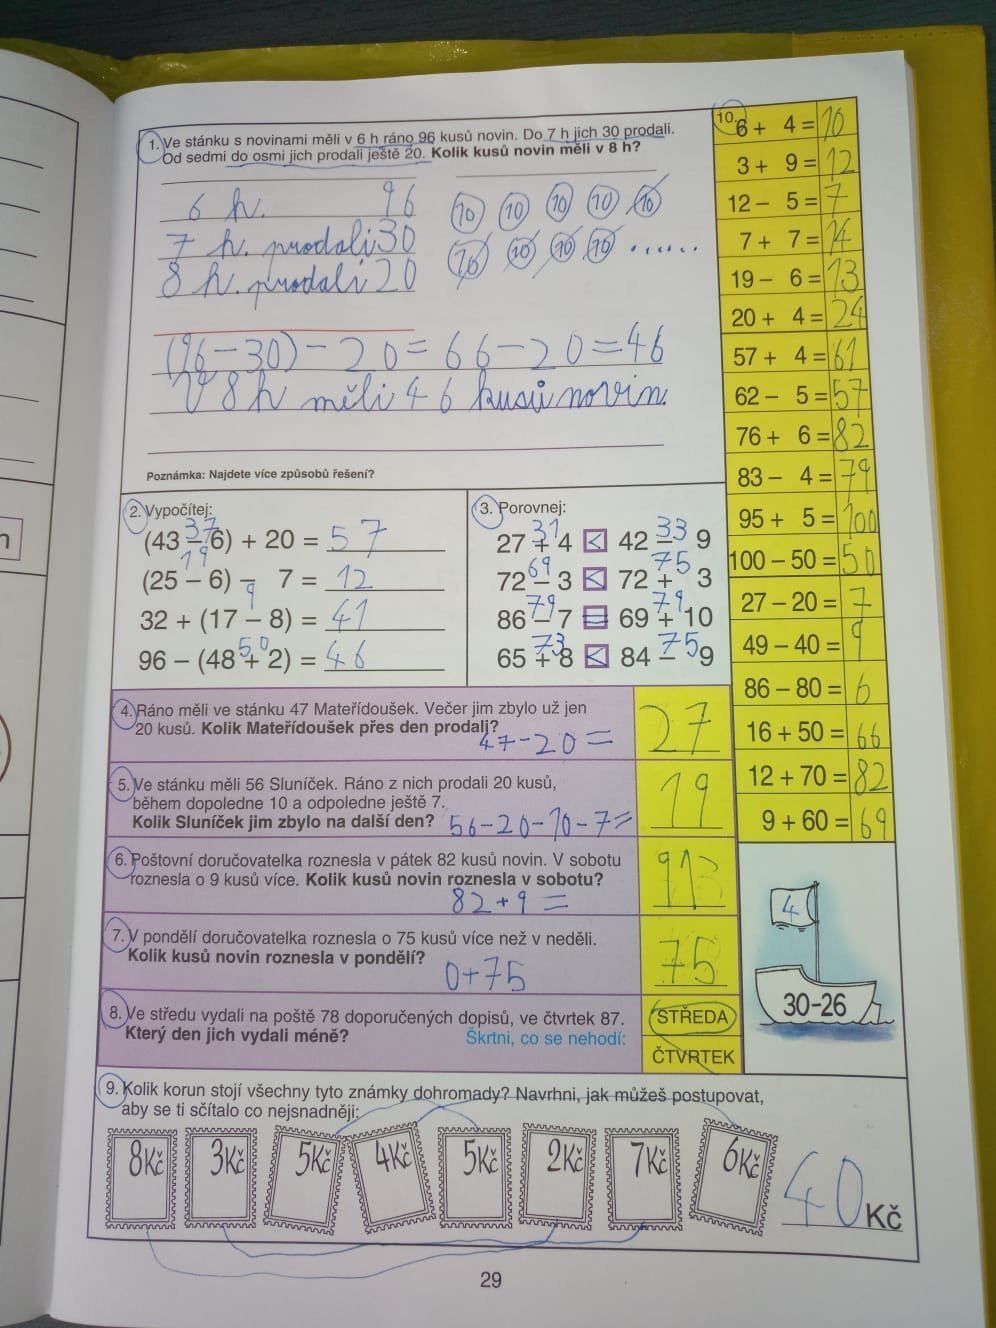 1. Ve stánku s novinami měli v 6 h ráno 96 kusů novin. Do 7 h jich 30 prodali.
Od sedmi do osmi jich prodali ještě 20. Kolik kusů novin měli v 8 h?
6 h. 96
7 h. prodali 30
8 h. prodali 20
10 10 10 10 10
10 10 10 10 ......
(96-30)-20=66-20=46
V 8 h měli 46 kusů novin.
Poznámka: Najdete více způsobů řešení?
2. Vypočítej:
37
(43 – 6) + 20 = 57
19
(25 – 6) – 7 = 12
9
32 + (17 – 8) = 41
50
96 – (48 + 2) = 46
3. Porovnej:
31 33
27 + 4 < 42 – 9
69 75
72 – 3 < 72 + 3
79 79
86 – 7 = 69 + 10
73 75
65 + 8 < 84 – 9
4. Ráno měli ve stánku 47 Mateřídoušek. Večer jim zbylo už jen
20 kusů. Kolik Mateřídoušek přes den prodali?
47-20= 27
5. Ve stánku měli 56 Sluníček. Ráno z nich prodali 20 kusů,
během dopoledne 10 a odpoledne ještě 7.
Kolik Sluníček jim zbylo na další den? 56-20-10-7= 19
6. Poštovní doručovatelka roznesla v pátek 82 kusů novin. V sobotu
roznesla o 9 kusů více. Kolik kusů novin roznesla v sobotu?
82+9=
7. V pondělí doručovatelka roznesla o 75 kusů více než v neděli.
Kolik kusů novin roznesla v pondělí?
0+75 75
8. Ve středu vydali na poště 78 doporučených dopisů, ve čtvrtek 87.
Který den jich vydali méně? Škrtni, co se nehodí:
STŘEDA
ČTVRTEK
9. Kolik korun stojí všechny tyto známky dohromady? Navrhni, jak můžeš postupovat,
aby se ti sčítalo co nejsnadněji:
8Kč 3Kč 5Kč 4Kč 5Kč 2Kč 7Kč 6Kč 40 Kč
10.
6 + 4 = 10
3 + 9 = 12
12 – 5 = 7
7 + 7 = 14
19 – 6 = 13
20 + 4 = 24
57 + 4 = 61
62 – 5 = 57
76 + 6 = 82
83 – 4 = 79
95 + 5 = 100
100 – 50 = 50
27 – 20 = 7
49 – 40 = 9
86 – 80 = 6
16 + 50 = 66
12 + 70 = 82
9 + 60 = 69
4
30-26
29